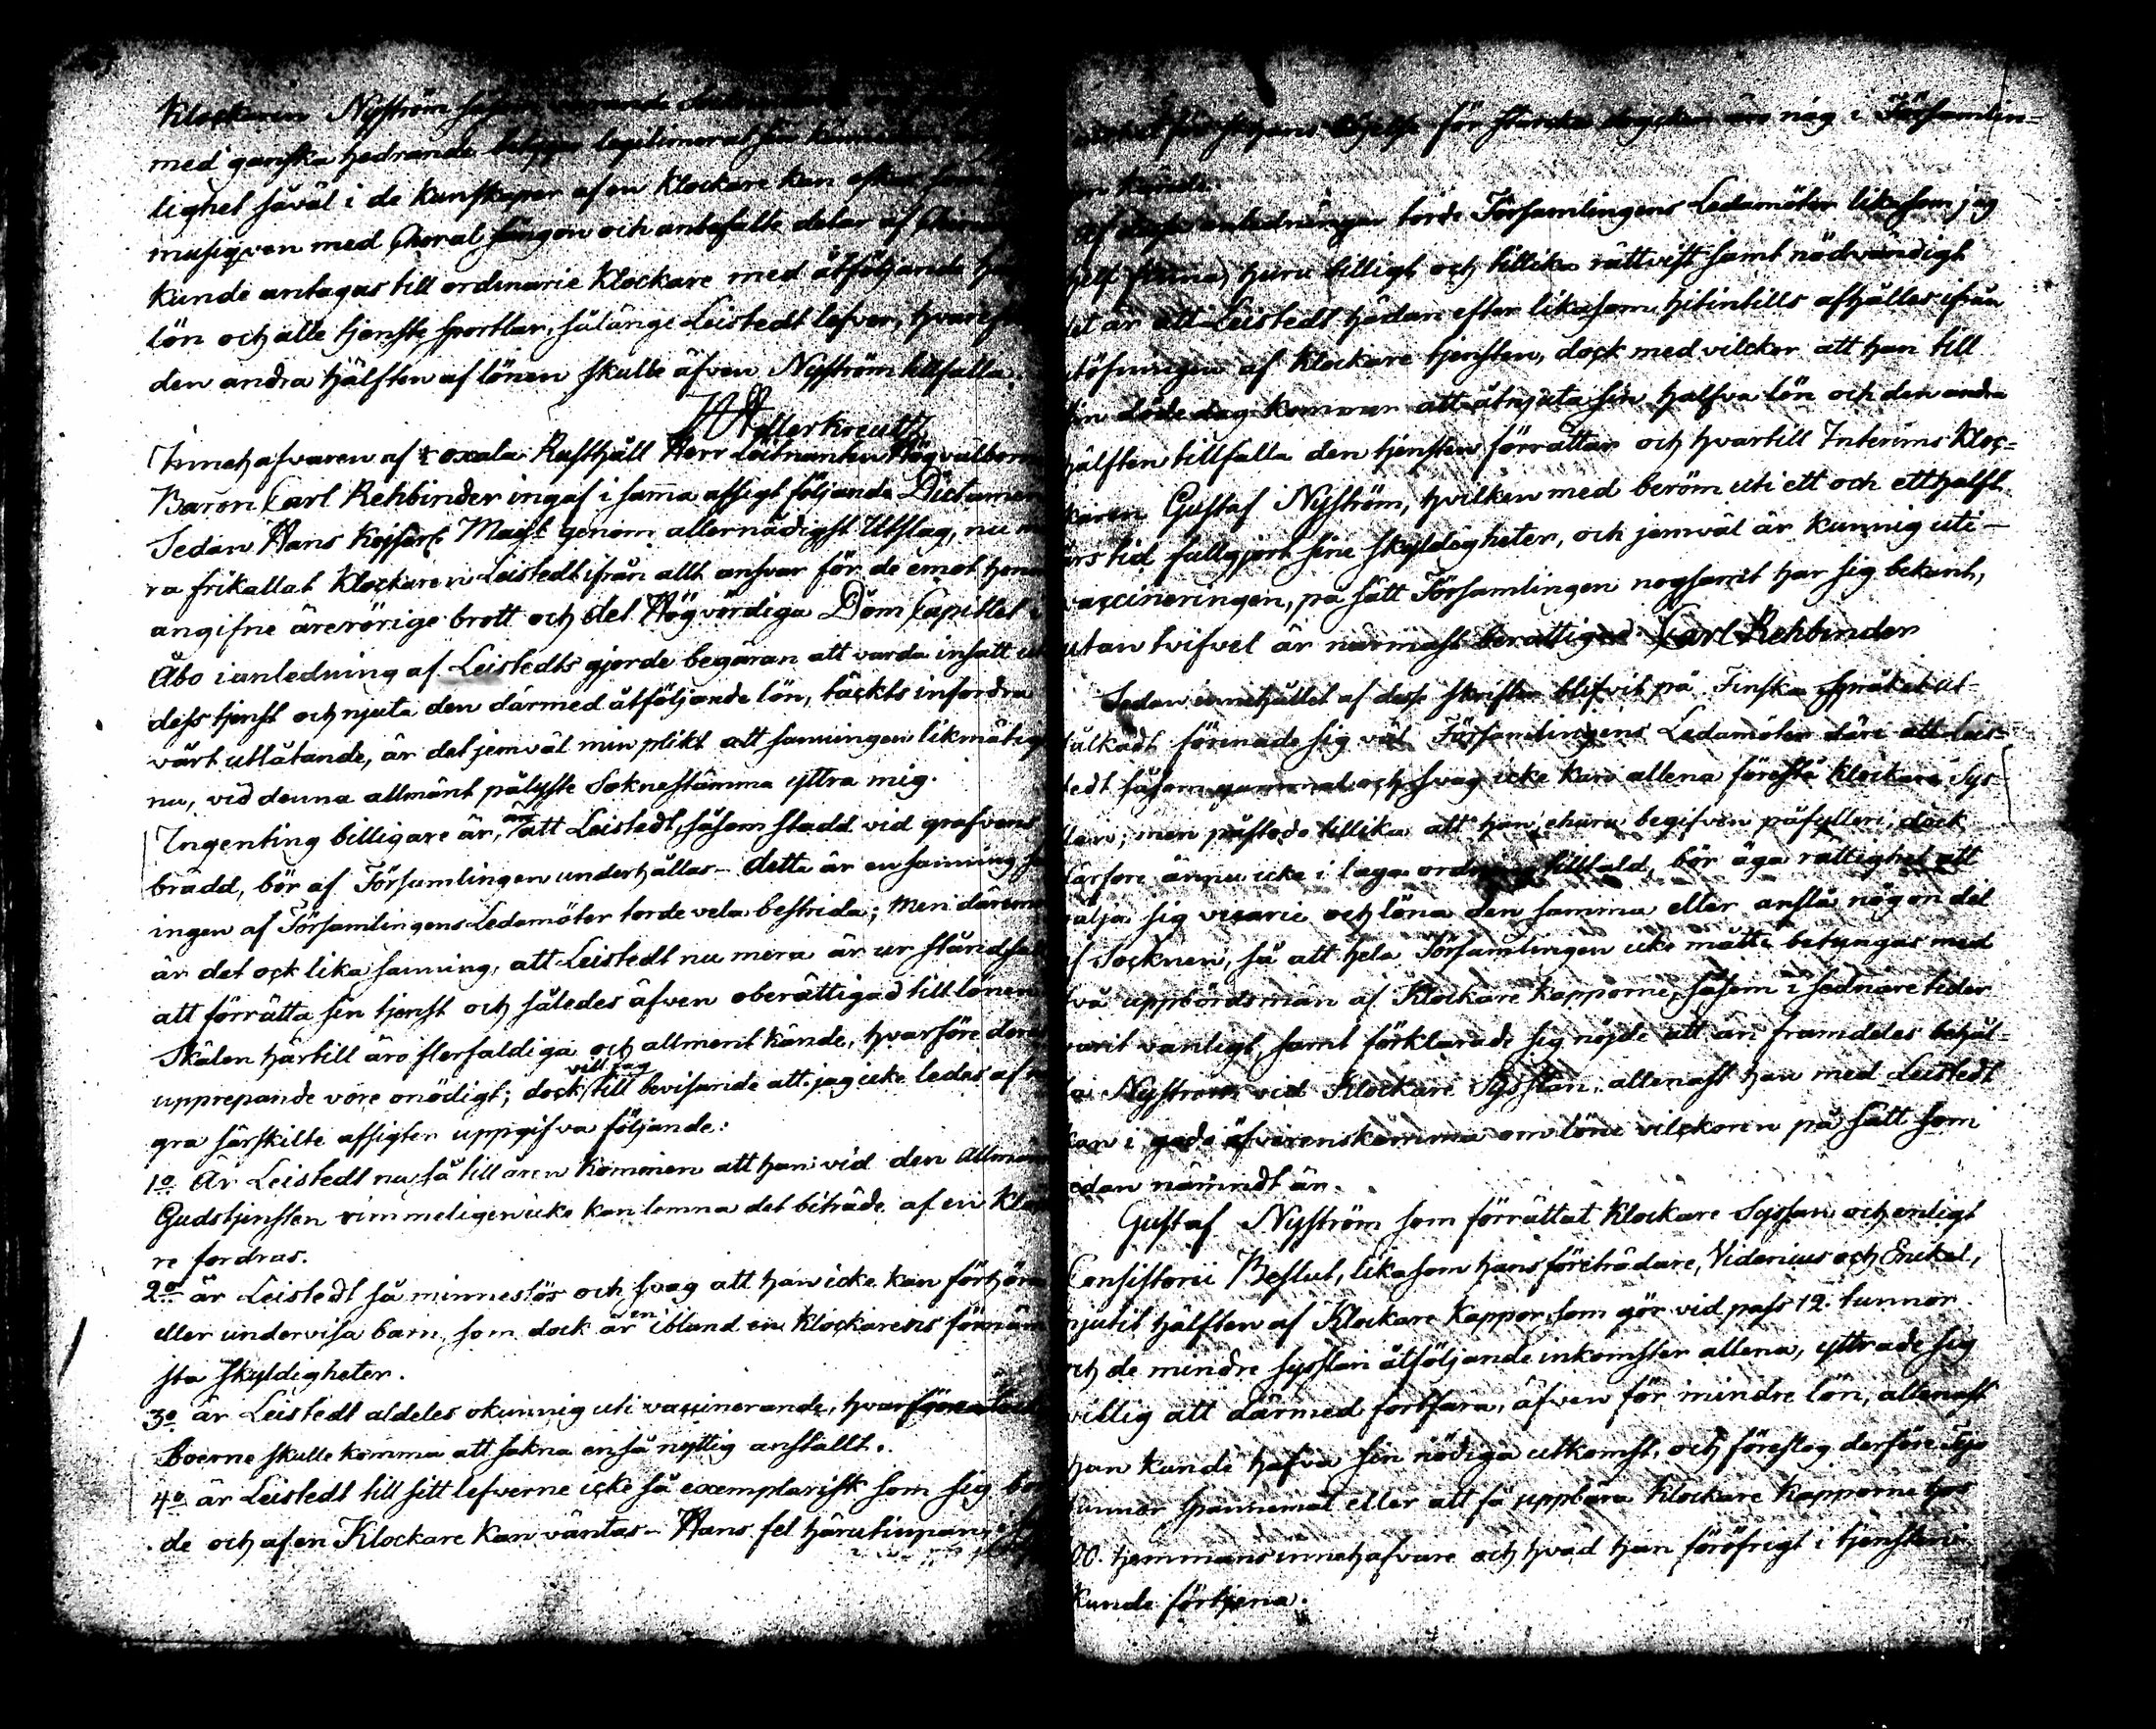 Klockaren Nyström såsom
med ganska hedrande betyger legitimerat sin
lighet såväl i de kunskaper af en Klockare kan
musiqven med Choral sången och anbefalte delar af
kunde antagas till ordinarie Klockare med åtföljande
lön och alle tjenste sportlar, sålänge Leistedt lefver, hvarefter
den andra hälften af lönen skulle äfven Nyström tillfalla.
Adlerkreutz
Innehafvaren af Rusthåll Herr Löitnanten Högvälborne
Baron Carl Rehbinder ingaf i samma afsigt följande Dictamen
Sedan Hans Kejserl: Majst genom allernådigst Utslag, nu me
ra frikallat Klockaren Leistedt ifrån allt ansvar för de emot honom
angifne ärerörige brott och det Högvördiga Dom Capitlet i
Åbo i anledning af Leistedts gjorde begäran att varda insatt uti
dess tjenst och njuta den därmed åtföljande lön, täckts infordra
vårt utlåtande, är det jemväl min plikt att sanningen likmätigt
nu, vid denna allmänt pålyste Soknestämma yttra mig.
Ingenting billigare är, än att Leistedt, såsom stadd vid grafvens
brädd, bör af Församlingen underhållas – detta är en sanning
ingen af Församlingens Ledamöter torde vela bestrida; Men däremot
är det ock lika sanning, att Leistedt nu mera är ur stånd satt
att förrätta sin tjenst och således äfven oberättigad till lönen
Skälen härtill äro flerfaldiga och allment kände, hvarföre deras
upprepande vore onödigt; dock vill jag till bevisande att jag icke ledes af nå
gra särskilte afsigter uppgifva följande:
1o Är Leistedt nu så till åren kommen att han vid den Allmänna
Gudstjensten rimmeligen icke kan lemna det biträde af en Klocka
re fordras.
2o är Leistedt så minneslös och svag att han icke kan förhöra
eller undervisa barn, som dock är en ibland en Klockarens förnäm
sta skyldigheter.
3o är Leistedt aldeles okunnig uti vaccinerande, hvarföre
boerne skulle komma att sakna en så nyttig anstallt.
4o är Leistedt till sitt lefverne icke så exemplarisk som sig bor
de och af en Klockare kan väntas – Hans fel härutinnan
för starcka drycker äro nog i Församlin=
gen kände.
Af desse anledningar torde Församlingens Ledamöter likasom jag
sielf finna, huru billigt och tillika rättvist samt nödvändigt
det är att Leistedt hädan efter likasom hitintills afhålles ifrån
utöfningen af Klockare tjensten, dock med vilckor att han till
sin döde dag kommer att åtnjuta sin halfva lön och den andra
hälften tillfalla den tjensten förrättar och hvartill Interims Kloc=
karen Gustaf Nyström, hvilken med beröm uti ett och ett halft
års tid fullgjort sine skyldigheter, och jemväl är kunnig uti –
vaccineringen, på sätt Församlingen nogsamt har sig bekant,
utan tvifvel är närmast berättigad. Carl Rehbinder
Sedan innehållet af desse skrifter blifvit på Finska språket ut-
tålkadt förenade sig väl Församlingens Ledamöter däri att Leis=
tedt såsom gammal och svag icke kan allena förestå Klockare Sys=
slan; men påstodo tillika att han, ehuru begifven på fylleri, dock
därfore ännu icke i laga ordning tilltald, bör äga rättighet att
välja sig vicarie och löna den samma eller anslå någon del
af Socknen, så att hela Församlingen icke måtte betungas med
två uppbördsmän af Klockare kapporne, såsom i sednare tider
varit vanligt, samt förklarade sig nöjde att än framdeles behål=
la Nyström vid Klockare Sysslan, allenast han med Leistedt
kan i godo öfverenskomma om löne vilckoren på sätt som
redan nämndt är.
Gustaf Nyström som förrättat Klockare Sysslan och enligt
Consistorii Beslut, likasom hans företrädare, Videnius och Enckel,
njutit hälften af Klockare Kappor, som gör vid pass 12. tunnor
och de mindre sysslan åtföljande inkomster allena, yttrade sig
villig att därmed fortfara, äfven för mindre lön, allenast
han kunde hafva sin nödiga utkomst, och föreslog derföre Sju
tunnor Spannemål eller att få uppbära Klockare Kapporne hos
00. hemmans innehafvare och hvad han föröfrigt i tjensten
kunde förtjena.